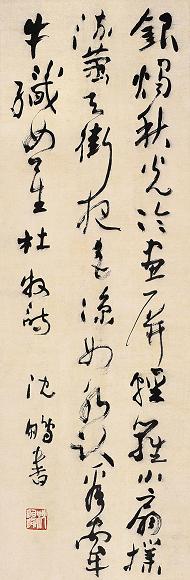 銀燭秋光冷畫屏輕羅小扇撲
流螢天街夜色涼如水臥看牽
牛織女星杜牧詩 沈鵬書